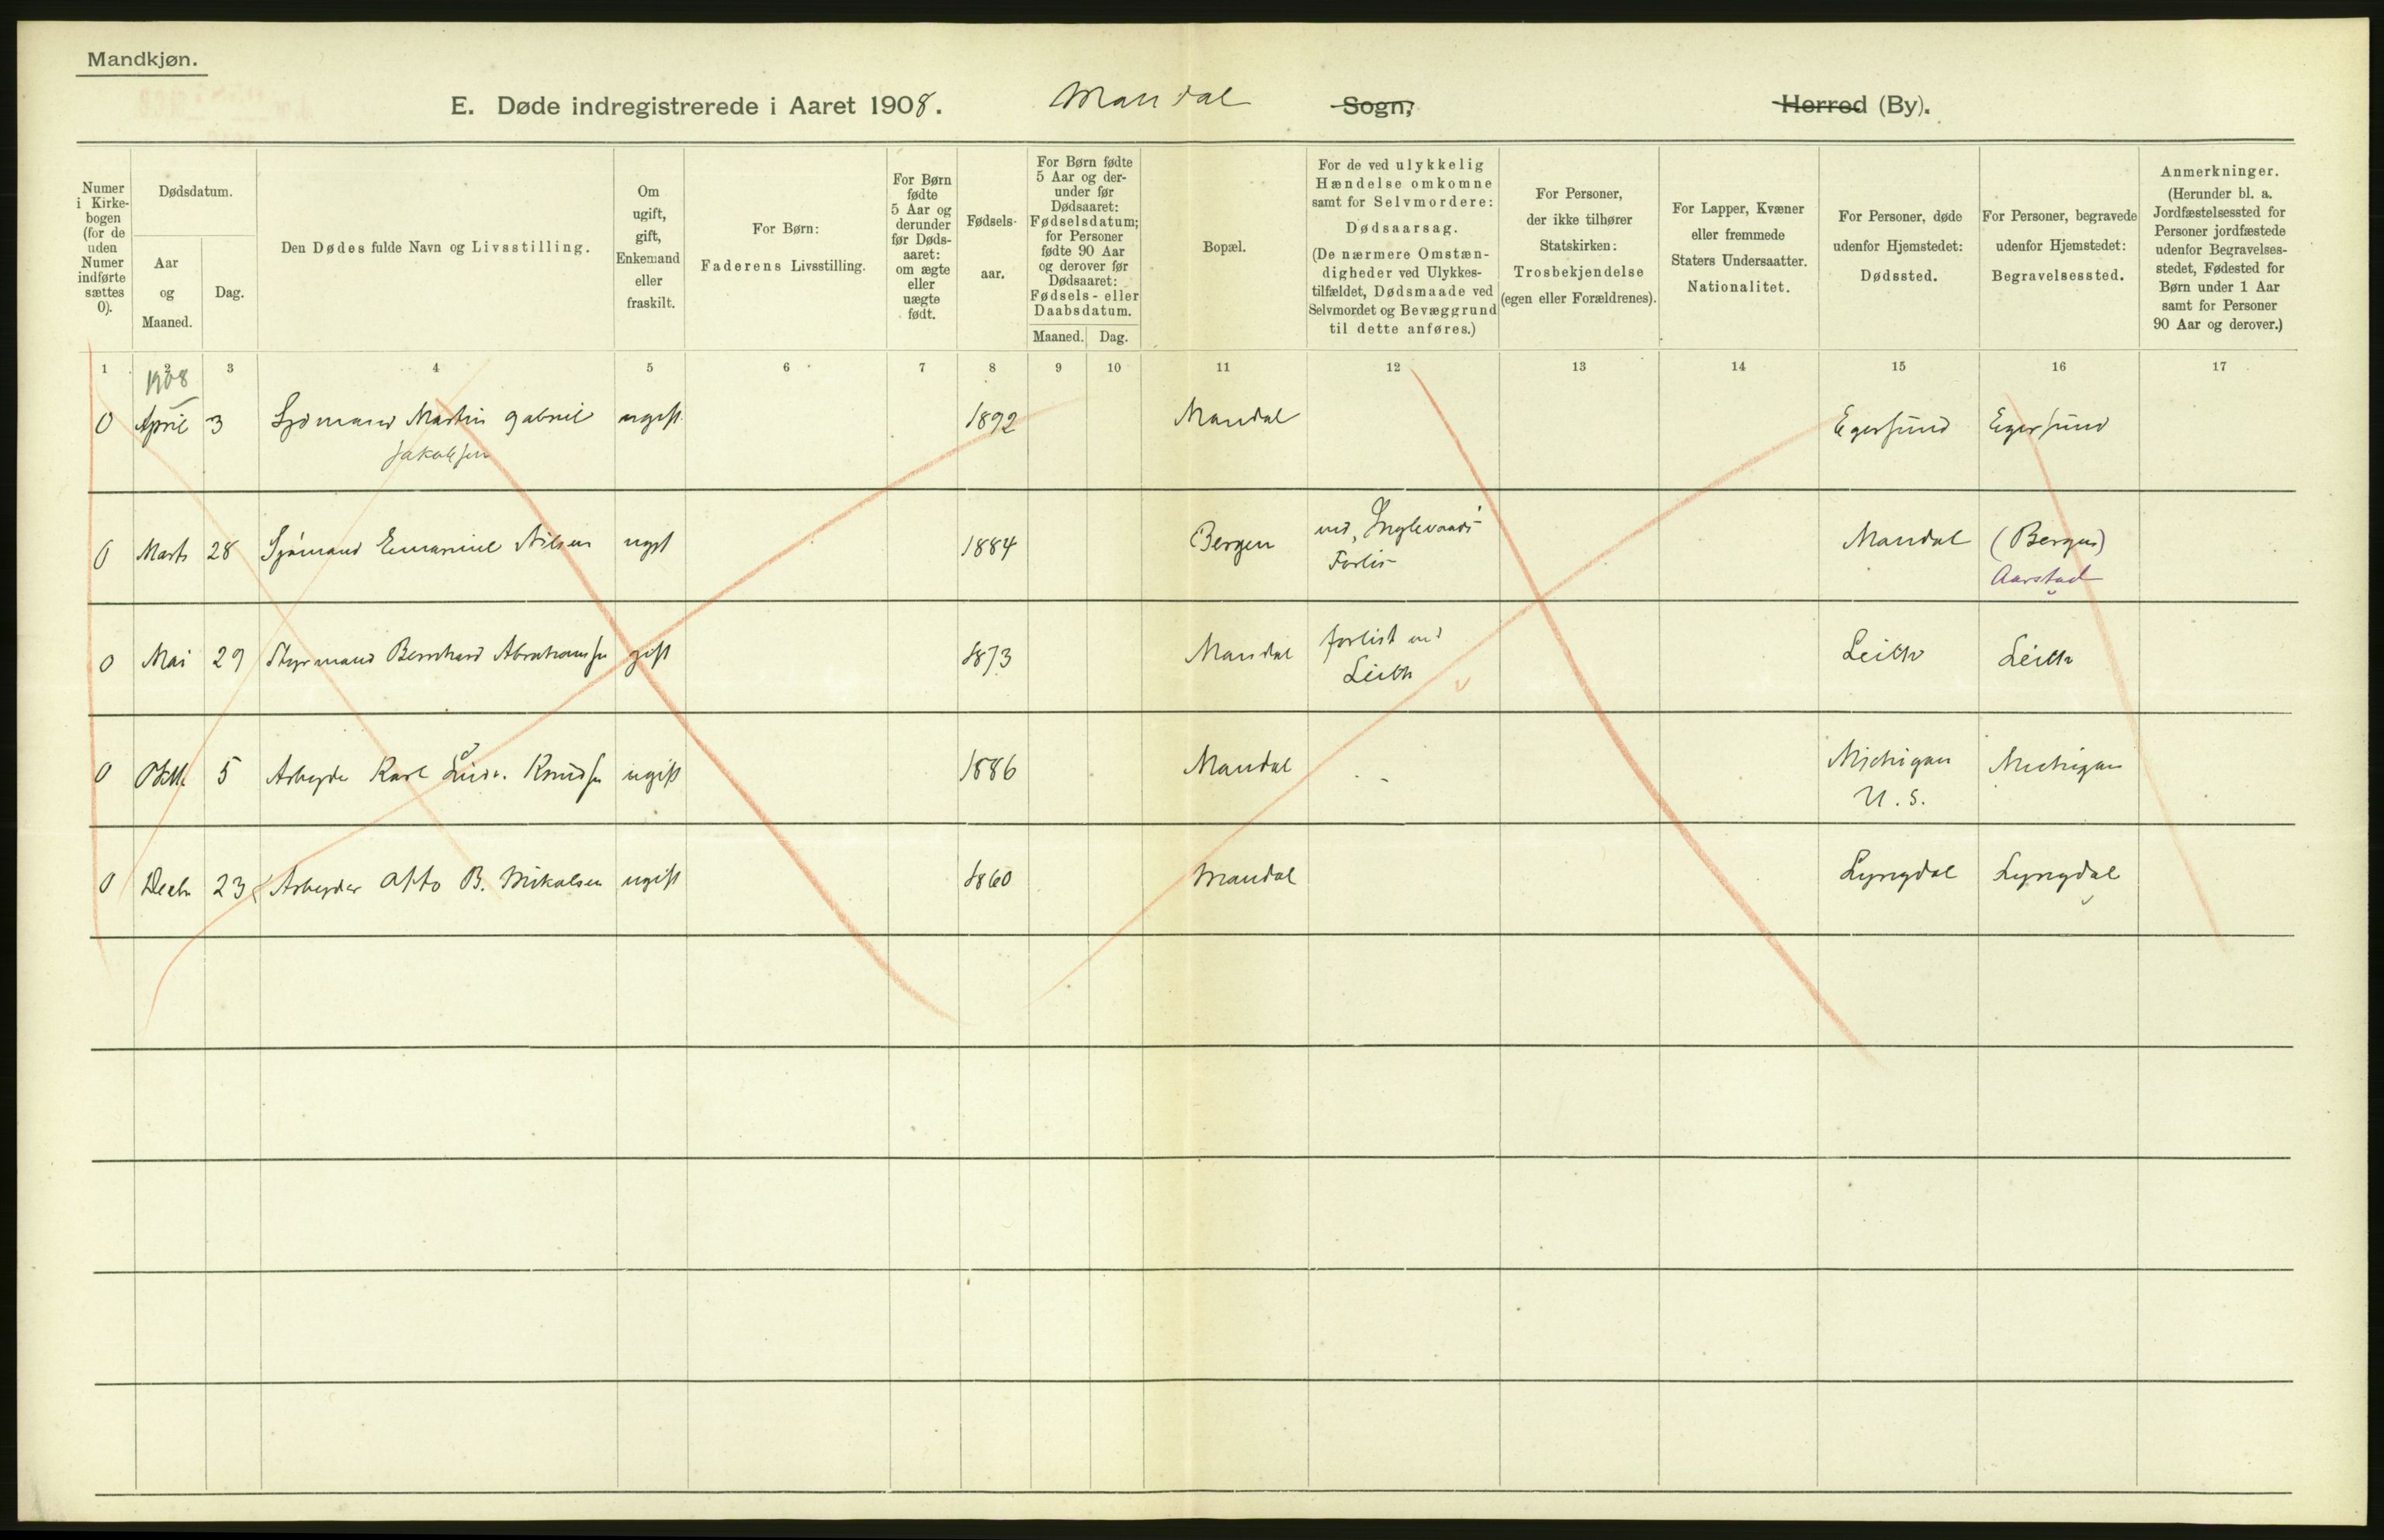 Mandkjøn.
E. Døde indregistrerede i Aaret 1908. Mandal Sogn, Herred (By).
Numer
i Kirke-
bogen
(for de
uden
Numer
indførte
sættes
0).
Dødsdatum.
Aar
og
Maaned.
Dag.
Den Dødes fulde Navn og Livsstilling.
Om
ugift,
gift,
Enkemand
eller
fraskilt.
For Børn:
Faderens Livsstilling.
For Børn
fødte
5 Aar og
derunder
før Døds-
aaret:
om ægte
eller
uægte
født.
Fødsels-
aar.
For Børn fødte
5 Aar og der-
under før
Dødsaaret:
Fødselsdatum;
for Personer
fødte 90 Aar
og derover før
Dødsaaret:
Fødsels- eller
Daabsdatum.
Maaned. Dag.
Bopæl.
For de ved ulykkelig
Hændelse omkomne
samt for Selvmordere:
Dødsaarsag.
(De nærmere Omstæn-
digheder ved Ulykkes-
tilfældet, Dødsmaade ved
Selvmordet og Bevæggrund
til dette anføres.)
For Personer,
der ikke tilhører
Statskirken:
Trosbekjendelse
(egen eller Forældrenes).
For Lapper, Kvæner
eller fremmede
Staters Undersaatter.
Nationalitet.
For Personer, døde
udenfor Hjemstedet:
Dødssted.
For Personer, begravede
udenfor Hjemstedet:
Begravelsessted.
Anmerkninger.
(Herunder bl. a.
Jordfæstelsessted for
Personer jordfæstede
udenfor Begravelses-
stedet, Fødested for
Børn under 1 Aar
samt for Personer
90 Aar og derover.)
1 2 3 4 5 6 7 8 9 10 11 12 13 14 15 16 17
1908
0 April 3 Sjømand Martin Gabriel ugift 1892 Mandal Egersund Egersund
Jakobsen
0 Marts 28 Sjømand Emanuel Nilsen ugift 1884 Bergen ved Mandal (Bergen)
Forlis Aarstad
0 Mai 29 Styrmand Bernhard Abrahamsen gift 1873 Mandal forlist ved Leith Leith
Leith
0 Oktb. 5 Arbeyder Karl Knudsen ugift 1886 Mandal - Michigan Michigan
U. S.
0 Decbr 23 Arbeyder Otto B. Mikalsen ugift 1860 Mandal Lyngdal Lyngdal